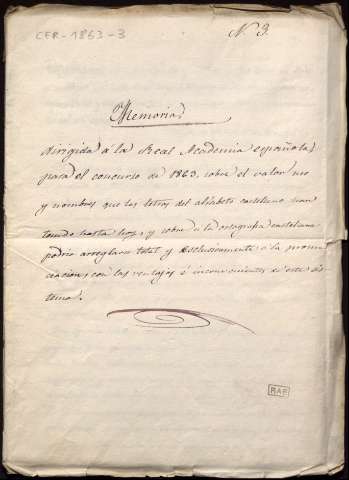 CER-1863-3
N. 3.
Memoria
dirigida á la Real Academia española,
para el concurso de 1863, sobre el valor, uso
y nombres que las letras del alfabeto castellano han
tenido hasta hoy; y sobre si la ortografia castellana
podria arreglarse total y esclusivamente á la pronun
ciacion; con las ventajas é inconvenientes de este sis-
tema.
RAE